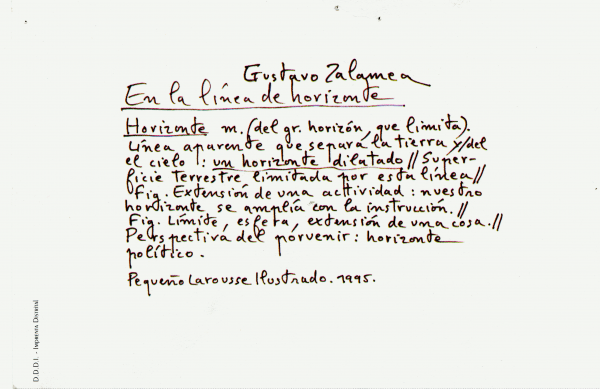 Gustavo Zalamea
En la línea de horizonte
Horizonte m. (del gr. horizón, que limita).
Línea aparente que separa la tierra y/del
el cielo : un horizonte dilatado // Super-
ficie terrestre limitada por esta línea //
Fig. Extensión de una actividad : nuestro
horizonte se amplía con la instrucción. //
Fig. Límite, esfera, extensión de una cosa. //
Perspectiva del porvenir : horizonte
político.
Pequeño Larousse Ilustrado. 1995.
D.D.D.I. - Imprenta Distrital